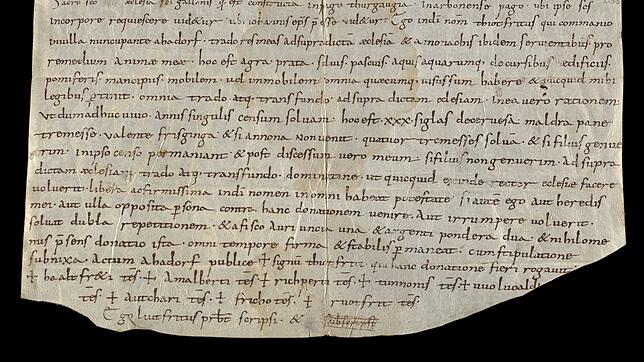 sacro sco ecclesia sci galleni q: est constructa in pago thurgaugia inarbonense pago ubi ipse scs
incorpore requiescere uidetur. ubi iohannis eps p̄esse uidetur. Ego indi nom thiotfritus qui commanio
in uilla nuncupante ahadorf. trado res meas ad supradicta æclesia & a monachis ibidem seruientibus pro
remedium animæ meæ. hoc est agra prata. siluis pascuis aquis aquarumq: decursibus ædificiis.
pomiferis mancipiis mobilem. uel immobilem omnia quæcumq: uisus sum habere & quicquid mihi
legibus ptinit. omnia trado atq: transfundo ad supra dictam æclesiam. in ea uero rationem
ut dum aduc uiuo. annis singulis censum soluam hoc est .xxx. siglas de ceruesa maldra pane
tremesse. ualente frisginga & si annona non uenit. quatuor tremesses soluā. & si filius genue
rim. in ipso censo permaniant & post discessum uero meum si filius non genuerim. ad supra
dictam æclesiam trado atq: transfundo. dominatione. ut quicquid exinde rector æclesiæ facere
uoluerit. libera ac firmissima indi nomen in omni habeat potestate si aute ego aut heredis
mei. aut ulla opposita psona contra hanc donationem uenire. aut irrumpere uoluerit.
soluat dubla repetitionem. & a fisco auri uncia una & argenti pondera dua & nihilome
nus psens donatio ista. omni tempore firma & stabilis pmaneat. cum stipulatione
subnixa. Actum ahadorf publice + signū thiotfrit qui hanc donatione fieri rogauit.
+ haaltfredi tes. + Amalberti tēs. + richperti tēs. + tunnonis tēs. + uuoluoaldi
tēs. + autchari tēs. + frichotes. + ruotfrit tes.
Ego liutfritus prbt scripsi. & subscripsi